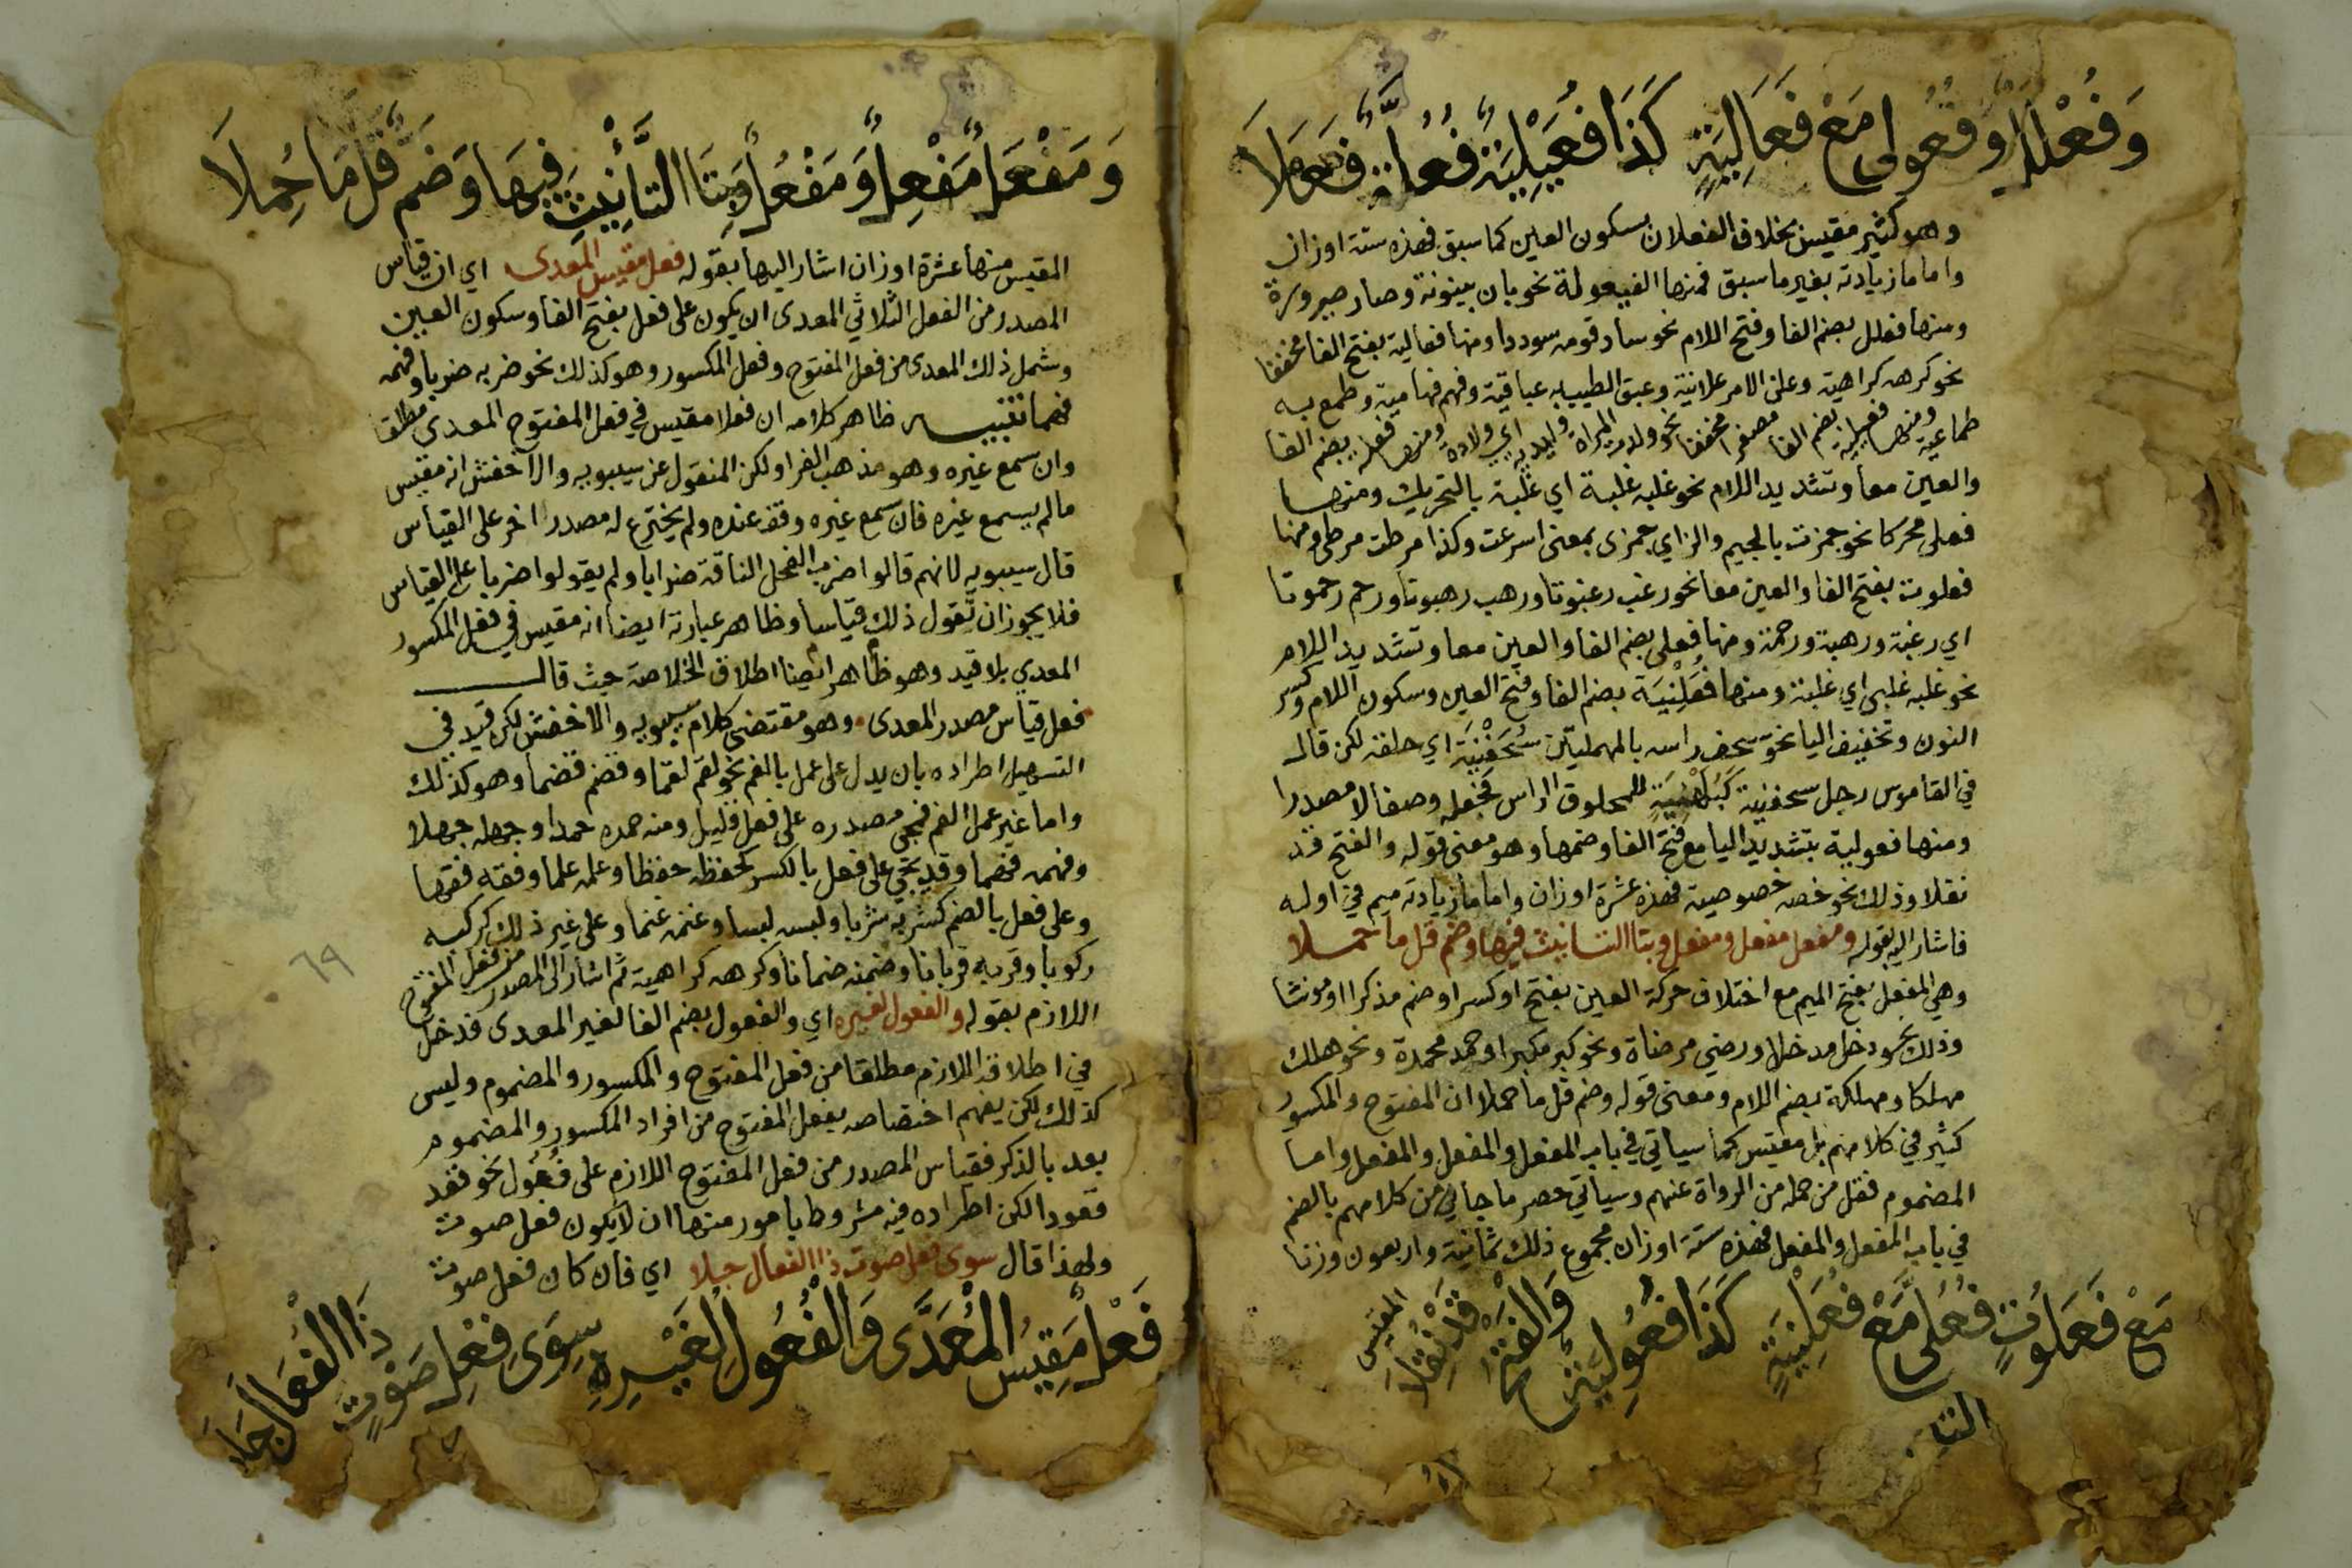 وَفُعْلَلٍ وفُعُولى مَعْ فَعَالِيَةٍ كَذَا فُعَيْلِيَةٌ فُعُلَّةٌ فَعَلَا
وهو كثير مقيس بخلاف الفعلان بسكون العين كما سبق فهذه ستة اوزان
واما ما زيادته بغير ما سبق فمنها الفيعولة نحو بان بينونة وصار صيرورة
ومنها فعلل بضم الفا وفتح اللام نحو ساد قومه سوددا ومنها فعالية بفتح الفا مخففا
نحو كرهه كراهية وعلن الامر علانية وعبق الطيب به عباقية وفهم فهامية وطمع به
طماعية ومنها فعيلية بضم الفا مصغرا مخففا نحو ولدت المراة وليدية اي ولادة ومنها فعلة بضم الفا
والعين معا وتشديد اللام نحو غلبه غلبة اي غلبة بالتحريك ومنها
فعلى محركا نحو جمزت بالجيم والزاي جمزى بمعنى اسرعت وكذا مرطت مرطى ومنها
فعلوت بفتح الفا والعين معا نحو رغب رغبوتا ورهب رهبوتا ورحم رحموتا
اي رغبة ورهبة ورحمة ومنها فعلى بضم الفا والعين معا وتشديد اللام
نحو غلبه غلبى اي غلبة ومنها فُعَلْنِيَة بضم الفا وفتح العين وسكون اللام وكسر
النون وتخفيف اليا نحو سحف راسه بالمهملتين سُحَفْنِيَة اي حلقه لكن قال
في القاموس رجل سحفنية كَبُلَهْنِيَةٍ للمحلوق الراس فجعله وصفا لا مصدرا
ومنها فعولية بتشديد اليا مع فتح الفا وضمها وهو معنى قوله والفتح قد
نقلا وذلك نحو خصه خصوصية فهذه عشرة اوزان واما ما زيادته ميم في اوله
فاشار اليه بقوله ومفعل مفعل ومفعل وبتا التانيث فيها وضم قل ما حملا
وهي المفعل بفتح الميم مع اختلاف حركة العين بفتح او كسر او ضم مذكرا او مونثا
وذلك نحو دخل مدخلا ورضي مرضاة ونحو كبر مكبرا وحمد محمدة ونحو هلك
مهلكا ومهلكة بضم اللام ومعنى قوله وضم قل ما حملا ان المفتوح والمكسور
كثير في كلامهم بل مقيس كما سياتي في باب المفعل والمفعل والمفعل واما
المضموم فقل من حمله من الرواة عنهم وسياتي حصر ما جا في من كلامهم بالضم
في باب المفعل والمفعل فهذه ستة اوزان مجموع ذلك ثمانية واربعون وزنا
مَعْ فَعَلُوتٍ فُعُلَّى مَعْ فُعَلْنِيَةٍ كَذَا فُعُولِيَةٌ وَالْفَتْحُ قَدْ نُقِلَا
المقيس
وَمَفْعَلٌ مَفْعِلٌ وَمَفْعُلٌ وَبِتَا التَّأْنِيثِ فِيهَا وَضَمٌّ قَلَّ مَا حُمِلَا
المقيس منها عشرة اوزان اشار اليها بقوله فعل مقيس المعدى اي ان قياس
المصدر من الفعل الثلاثي المعدى ان يكون على فعل بفتح الفا وسكون العين
وشمل ذلك المعدى من فعل المفتوح وفعل المكسور وهو كذلك نحو ضربه ضربا وفهمه
فهما تنبيه ظاهر كلامه ان فعلا مقيس في فعل المفتوح المعدى مطلقا
وان سمع غيره وهو مذهب الفرا ولكن المنقول عن سيبويه والاخفش انه مقيس
ما لم يسمع غيره فان سمع غيره وقف عنده ولم يخترع له مصدر اخر على القياس
قال سيبويه لانهم قالوا ضرب الفحل الناقة ضرابا ولم يقولوا ضربا على القياس
فلا يجوز ان تقول ذلك قياسا وظاهر عبارته ايضا انه مقيس في فعل المكسور
المعدي بلا قيد وهو ظاهر ايضا اطلاق الخلاصة حيث قال
فعل قياس مصدر المعدى وهو مقتضى كلام سيبويه والاخفش لكن قيد في
التسهيل اطراده بان يدل على عمل بالفم نحو لقم لقما وقضم قضما وهو كذلك
واما غير عمل الفم فمجي مصدره على فعل قليل ومنه حمده حمدا وجهله جهلا
وفهمه فهما وقد يجي على فعل بالكسر كحفظه حفظا وعلمه علما وفقه فقها
وعلى فعل بالضم كشربه شربا ولبسه لبسا وغنمه غنما وعلى غير ذلك كركبه
ركوبا وقربه قربانا وضمنه ضمانا وكرهه كراهية ثم اشار الى المصدر من فعل المفتوح
اللازم بقوله والفعول لغيره اي والفعول بضم الفا لغير المعدى فدخل
في اطلاقه اللازم مطلقا من فعل المفتوح والمكسور والمضموم وليس
كذلك لكن يفهم اختصاصه بفعل المفتوح من افراد المكسور والمضموم
بعد بالذكر فقياس المصدر من فعل المفتوح اللازم على فُعُول نحو قعد
قعودا لكن اطراده فيه مشروط بامور منها ان لا يكون فعل صوت
ولهذا قال سوى فعل صوت ذا الفعال جلا اي فان كان فعل صوت
فَعْلٌ مَقِيسُ الْمُعَدَّى وَالْفُعُولُ لِغَيْرِهِ سِوَى فِعْلِ صَوْتٍ ذَا الْفُعَالَ جَلَا
٦٩